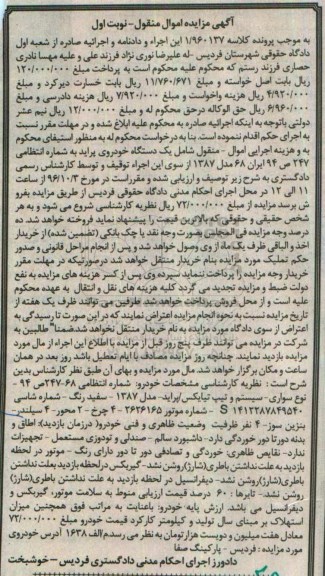 آگهی مزایده اموال منقول-نوبت اول
به موجب پرونده کلاسه ۱/۹۶۰۱۳۷ این اجراء و دادنامه و اجرائیه صادره از شعبه اول
دادگاه حقوقی شهرستان فردیس -له علیرضا نوری نژاد فرزند علی و علیه مهسا نادری
حصاری فرزند رستم که محکوم علیه محکوم است به پرداخت مبلغ ۱۲۰/۰۰۰/۰۰۰
ریال بابت اصل خواسته و مبلغ ۱۱/۷۶۰/۶۷۱ ریال بابت خسارت دیرکرد و مبلغ
۴/۹۲۰/۰۰۰ ریال هزینه واخواست و مبلغ ۷/۹۲۰/۰۰۰ ریال هزینه دادرسی و مبلغ
۶/۹۶۰/۰۰۰ ریال حق الوکاله در حق محکوم له و مبلغ ۱۲/۰۰۰/۰۰۰ ریال نیم عشر
دولتی باتوجه به اینکه اجرائیه صادره به محکوم علیه ابلاغ شده و در مهلت مقرر نسبت
به اجرای حکم اقدام ننموده است. بنا به درخواست محکوم له به منظور استیفای محکوم
به و هزینه اجرایی اموال - منقول شامل یک دستگاه خودروی پراید به شماره انتظامی
۲۴۷ ص ۹۴ ایران ۶۸ مدل ۱۳۸۷ از سوی این اجراء توقیف و توسط کارشناس رسمی
دادگستری به شرح زیر توصیف و ارزیابی شده و مقرر است در مورخ ۹۶/۱۰/۳ از ساعت
۱۱ الی ۱۲ در محل اجرای احکام مدنی دادگاه حقوقی فردیس از طریق مزایده بفرو
ش برسد مزایده از مبلغ ۷۲/۰۰۰/۰۰۰ ریال نظریه کارشناسی شروع می شود و به هر
شخص حقیقی و حقوقی که بالاترین قیمت را پیشنهاد نماید فروخته خواهد شد. ده
درصد وجه مزایده فی المجلس بصورت وجه نقد یا چک بانکی (تضمین شده) از خریدار
اخذ و الباقی ظرف یک ماه از وی وصول خواهد شد و پس از انجام مراحل قانونی و صدور
حکم تملیک مورد مزایده بنام خریدار منتقل خواهد شد درصورتیکه در مهلت مقرر
خریدار وجه مزایده را پرداخت ننماید سپرده وی پس از کسر هزینه های مزایده به نفع
دولت ضبط و مزایده تجدید می گردد کلیه هزینه های نقل و انتقال به عهده محکوم
علیه است و از محل فروش پرداخت خواهد شد. طرفین می توانند ظرف یک هفته از
تاریخ مزایده نسبت به نحوه انجام مزایده اعتراض نمایند که در این صورت تا رسیدگی به
اعتراض از سوی دادگاه مورد مزایده به نام خریدار منتقل نخواهد شد ضمنا" طالبین به
شرکت در مزایده می توانند ظرف پنج روز قبل از مزایده با اطلاع این اجراء از مال مورد
مزایده بازدید نمایند. چنانچه روز مزایده مصادف با ایام تعطیل باشد روز بعد در همان
ساعت و مکان برگزار خواهد شد. مال مورد مزایده و بهای آن طبق نظر کارشناس بدین
شرح است : نظریه کارشناسی مشخصات خودرو: شماره انتظامی ۶۸-۲۴۷ص ۹۴ -
نوع سواری- سیستم و تیپ نیابکس/پراید- مدل ۱۳۸۷ - سفید رنگ - شماره شاسی
S ۱۴۱۲۲۸۷۸۴۹۵۴۰ - شماره موتور ۲۶۲۶۱۶۵ - ۴ چرخ - ۲ محور - ۴ سیلندر
بنزین سوز- ۴ نفر ظرفیت وضعیت ظاهری و فنی خودرو (درزمان بازدید): اطاق و
بدنه دورتا دور خوردگی دارد- داشبورد سالم - صندلی و تودوزی مستعمل - تجهیزات
ندارد- نقایص ظاهری: خوردگی و تصادفی دور تا دور دارای رنگ - موتور در لحظه
بازدید به علت نداشتن باطری(شارژ)روشن نشد- گیربکس درلحظه بازدید بعلت نداشتن
باطری(شارژ)روشن نشد- دیفرانسیل در لحظه بازدید به علت نداشتن باطری(شارژ)
روشن نشد- تایرها : ۶۰ درصد قیمت ارزیابی منوط به سلامت موتور، گیربکس و
دیفرانسیل می باشد. ارزش پایه خودرو: باعنایت به مراتب فوق همچنین میزان
استهلاک بر مبنای سال تولید و کیلومتر کارکرد قیمت خودرو مبلغ ۷۲/۰۰۰/۰۰۰
معادل هفت میلیون و دویست هزارتومان به نظر می رسدم/الف ۱۶۳۸ آدرس خودروی
مورد مزایده : فردیس - پارکینگ صفا
دادورز اجرای احکام مدنی دادگستری فردیس - خوشبخت